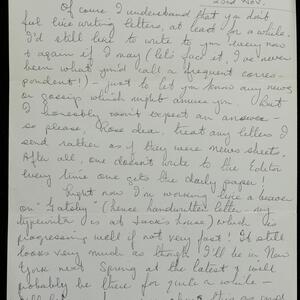 23rd Nov.
Of course I understand that you don't
feel like writing letters, at least for a while.
I'd still like to write to you every now
& again if I may (let's face it, I've never
been what you'd call a frequent corres-
pondent!) - just to let you know any news
or gossip which might amuse you. But
I honestly won't expect an answer -
so please, Rose dear, treat any letters I
send rather as if they were news sheets.
After all, one doesn't write to the Editor
every time one gets the daily paper!
Right now I'm working like a beaver
on "Gatsby" (hence handwritten letter - my
typewriter is at Jack's house) which is
progressing well if not very fast! It still
looks very much as though I'll be in New
York next Spring at the latest & will
probably be there for quite a while -